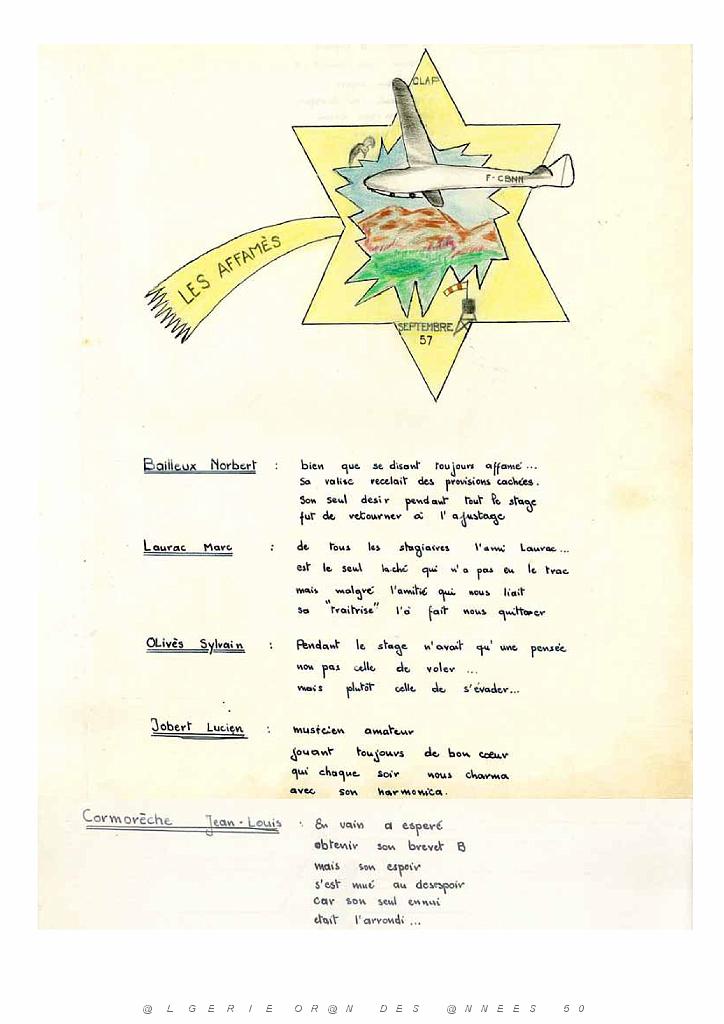 CLAP
F-CBNN
LES AFFAMÈS
SEPTEMBRE
57
Bailleux Norbert : bien que se disant toujours affamé...
Sa valise recelait des provisions cachées.
Son seul desir pendant tout le stage
fut de retourner à l'ajustage
Laurac Marc : de tous les stagiaires l'ami Laurac...
est le seul laché qui n'a pas eu le trac
mais malgré l'amitié qui nous liait
sa "traitrise" l'a fait nous quitter
OLivès Sylvain : Pendant le stage n'avait qu'une pensée
non pas celle de voler ...
mais plutôt celle de s'évader...
Jobert Lucien : musicien amateur
jouant toujours de bon cœur
qui chaque soir nous charma
avec son harmonica.
Cormorèche Jean-Louis : En vain a esperé
obtenir son brevet B
mais son espoir
s'est mué au desespoir
car son seul ennui
etait l'arrondi...
@ L G E R I E O R @ N D E S @ N N E E S 5 0